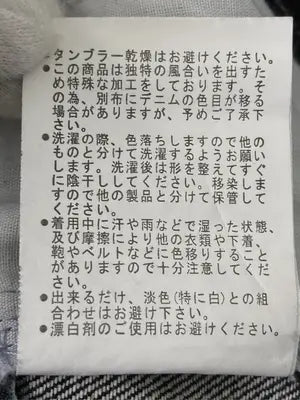 タンブラー乾燥はお避けください。
●この商品は独特の風合いを出すた
め特殊な加工をしております。そ
の為、別布にデニムの色目が移る
場合がありますが、予めご了承下
さい。
●洗濯の際、色落ちしますので他の
ものと分けて洗濯するようお願い
します。洗濯後は形を整えてすぐ
に陰干ししてください。移染しま
すので他の製品と分けて保管して
ください。
●着用中に汗や雨などで湿った状態、
及び摩擦により他の衣類や下着、
鞄やベルトなどに色移りすること
がありますので十分注意してくだ
さい。
●出来るだけ、淡色(特に白)との組
合わせはお避け下さい。
●漂白剤のご使用はお避けください。